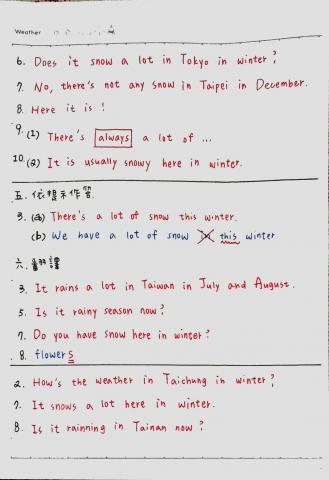 Weather
6. Does it snow a lot in Tokyo in winter?
7. No, there's not any snow in Taipei in December.
8. Here it is!
9. (1) There's always a lot of ...
10. (2) It is usually snowy here in winter.
五. 依提示作答
3. (a) There's a lot of snow this winter.
(b) We have a lot of snow in this winter
六. 翻譯
3. It rains a lot in Taiwan in July and August.
5. Is it rainy season now?
7. Do you have snow here in winter?
8. flowers
2. How's the weather in Taichung in winter?
7. It snows a lot here in winter.
8. Is it rainning in Tainan now?